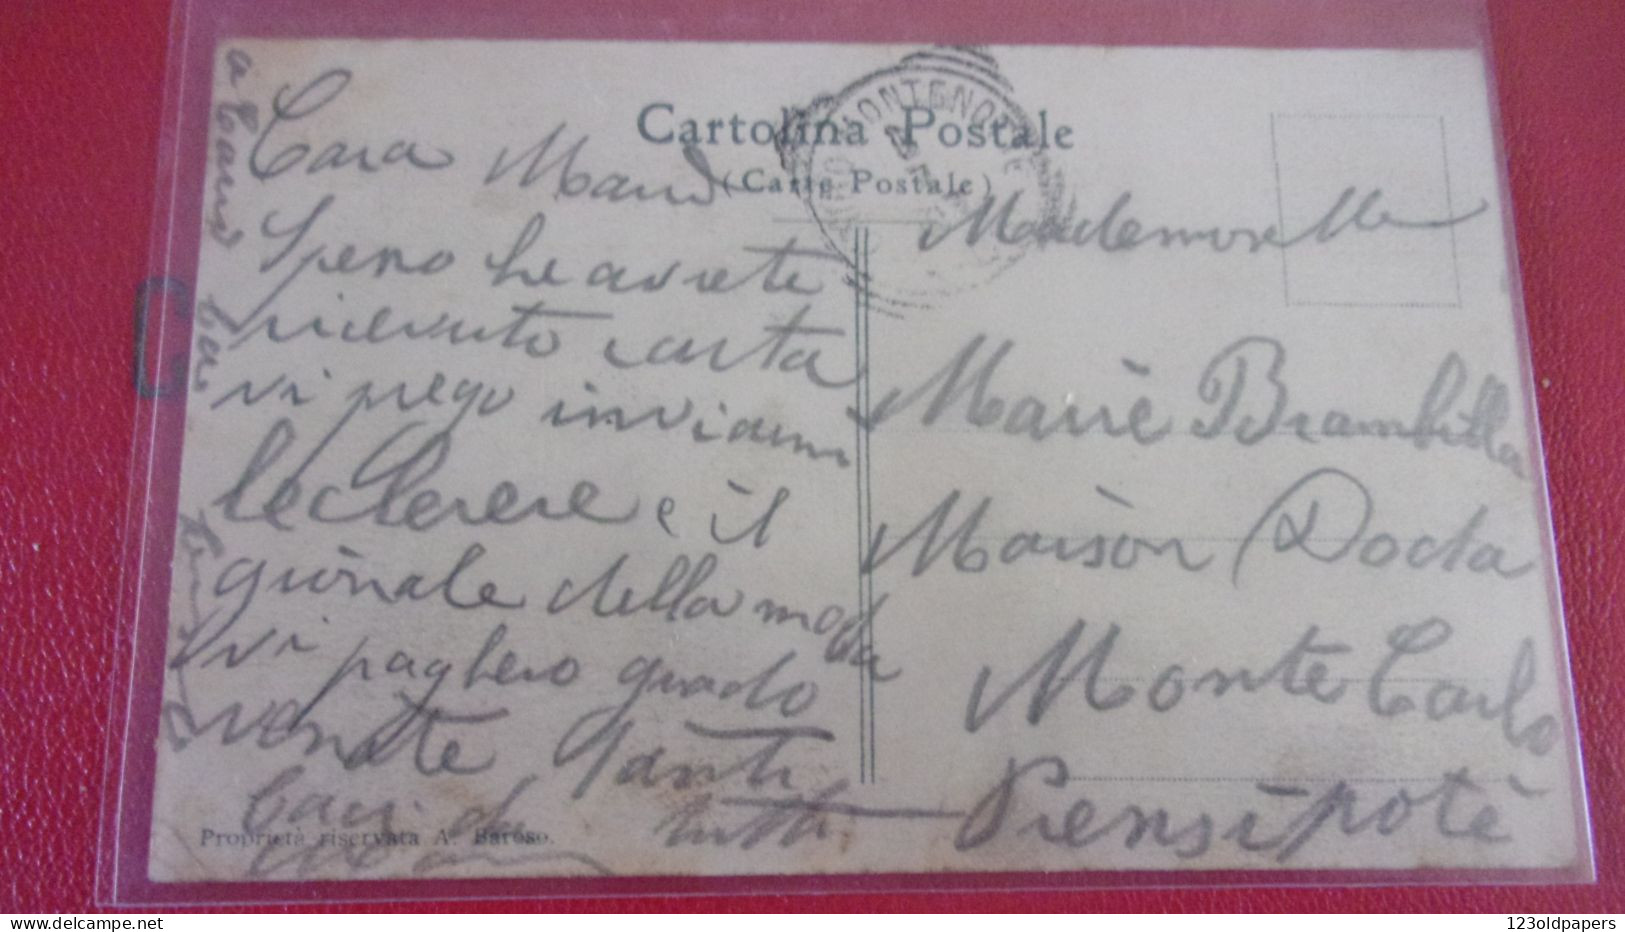 Cartolina Postale
(Carte Postale)
MONTIGNOSO
Cara Marie
Spero che avrete
ricevuto carta
vi prego inviarmi
le clerere e il
giornale della moda
vi paghero quado
venite Tanti
Baci da tutti
Mademoiselle
Mariè Brambilla
Maison Docta
Monte Carlo
Prensipotè
Proprietà riservata A. Baroso.
123oldpapers